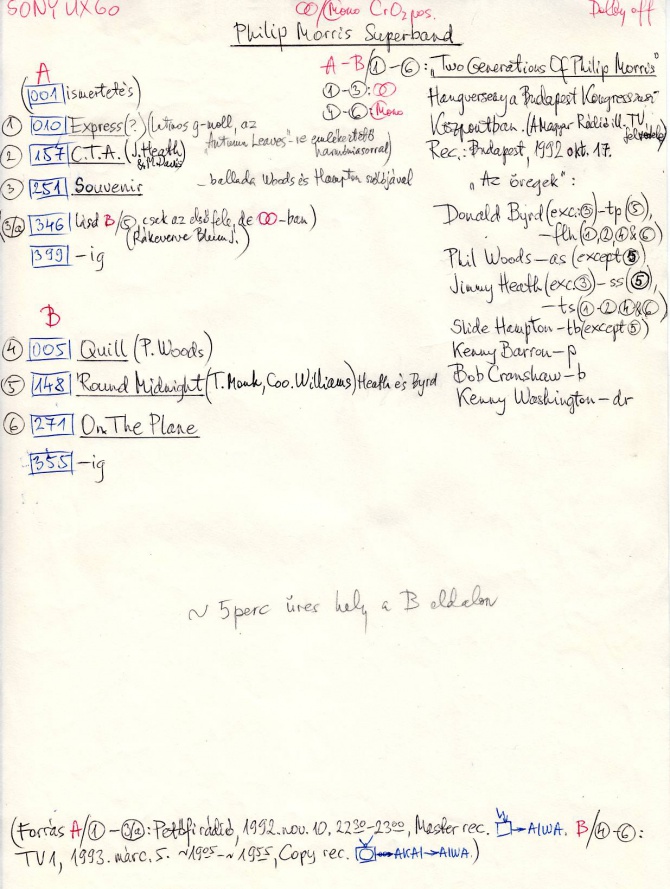 SONY UX60
∞/Mono CrO2 pos.
Dolby off
Philip Morris Superband
A
(001 ismertetés)
① 010 Express(?) (latinos g-moll, az
"Autumn Leaves"-re emlékeztető
harmóniasorral)
② 157 C.T.A. (J. Heath
& M. Davis)
③ 251 Souvenir – ballada Woods és Hampton szólójával
(3/a) 346 Lásd B/⑤, csak az első fele, de ∞-ban)
(Rákeverve Bleim J.)
399 -ig
B
④ 005 Quill (P. Woods)
⑤ 148 'Round Midnight (T. Monk, Coo. Williams) Heath és Byrd
⑥ 271 On The Plane
355 -ig
A-B/①-⑥: "Two Generations Of Philip Morris"
①-③: ∞
④-⑥: Mono
Hangverseny a Budapest Kongresszusi
Központban. (A Magyar Rádió ill. TV
felvétele)
Rec.: Budapest, 1992 okt. 17.
"Az öregek":
Donald Byrd (exc. ③) – tp (⑤),
– flh (①,②,④&⑥)
Phil Woods – as (except ⑤)
Jimmy Heath (exc. ③) – ss (⑤),
– ts (①-②④&⑥)
Slide Hampton – tb (except ⑤)
Kenny Barron – p
Bob Cranshaw – b
Kenny Washington – dr
~ 5 perc üres hely a B oldalon
(Forrás A/①-3/a: Petőfi rádió, 1992. nov. 10. 22³⁰-23⁰⁰, Master rec. → AIWA. B/④-⑥:
TV1, 1993. márc. 5. ~19⁰⁵-~19⁵⁵, Copy rec. → AKAI → AIWA.)